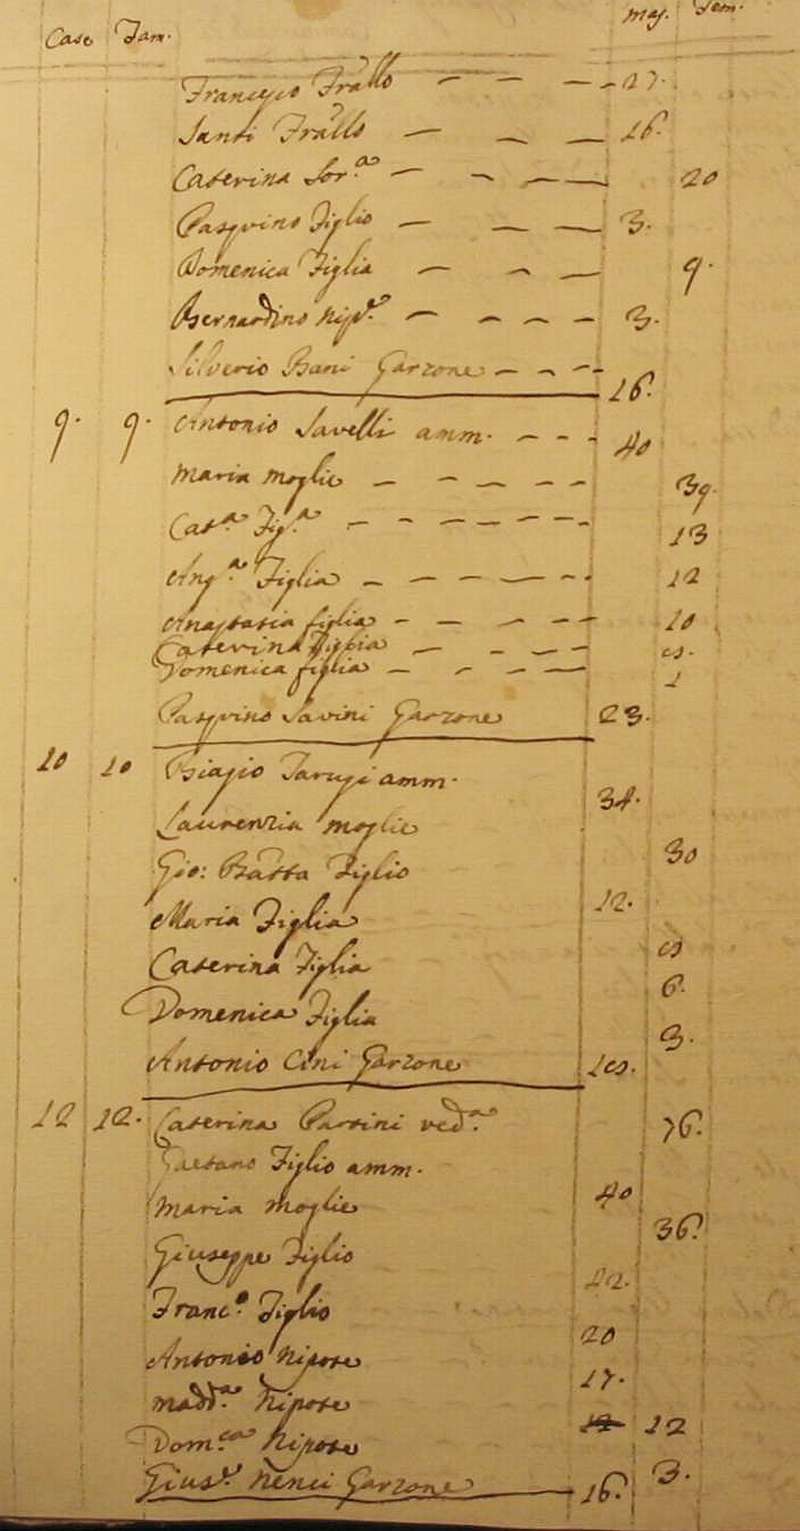 Case Fam. mas. Fem.
Francesco Frallo — — — 27.
Santi Frallo — — — 16.
Caterina Sor.a — — — — 20
Pasquino Figlio — — — 3.
Domenica Figlia — — — 9.
Bernardino Nip.e — — — — 3.
Silverio Bani Garzone — — — 16.
9. 9. Antonio Savelli amm. — — — 40
Maria Moglie — — — — — 39.
Cat.a Fig.a — — — — — — 13
Ang.a Figlia — — — — — — 12
Anastasia figlia — — — — — 10
Caterina Figlia — — — —
Domenica figlia — — — — 1
Pasquino Savini Garzone 23.
10 10 Biagio Tarugi amm. 34.
Laurenzia Moglie 30
Gio: Batta Figlio 12.
Maria Figlia
Caterina Figlia 6.
Domenica Figlia 3.
Antonio Cini Garzone
12 12. Caterina Partini ved.a 76.
Gaetano Figlio amm. 40
Maria Moglie 36.
Giuseppe Figlio
Franc.o Figlio 20
Antonio Nipote 17.
Madd.a Nipote 12
Dom.ca Nipote 3.
Gius.e Nenci Garzone 16.